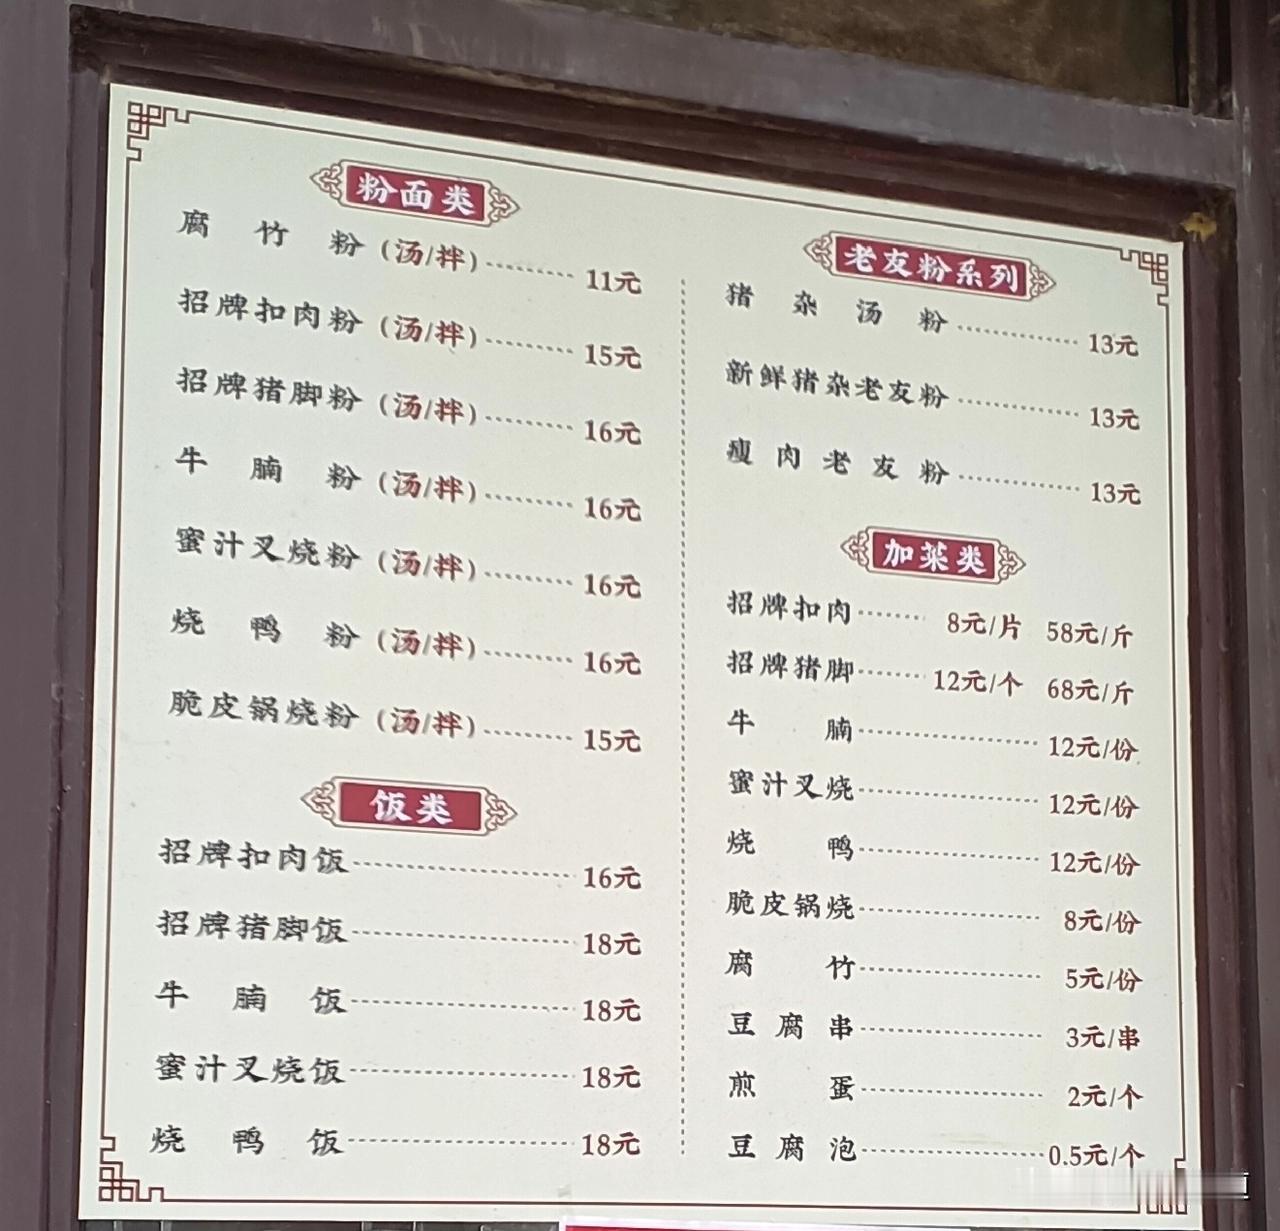 粉面类
腐竹粉（汤/拌） 11元
招牌扣肉粉（汤/拌） 15元
招牌猪脚粉（汤/拌） 16元
牛腩粉（汤/拌） 16元
蜜汁叉烧粉（汤/拌） 16元
烧鸭粉（汤/拌） 16元
脆皮锅烧粉（汤/拌） 15元
饭类
招牌扣肉饭 16元
招牌猪脚饭 18元
牛腩饭 18元
蜜汁叉烧饭 18元
烧鸭饭 18元
老友粉系列
猪杂汤粉 13元
新鲜猪杂老友粉 13元
瘦肉老友粉 13元
加菜类
招牌扣肉 8元/片 58元/斤
招牌猪脚 12元/个 68元/斤
牛腩 12元/份
蜜汁叉烧 12元/份
烧鸭 12元/份
脆皮锅烧 8元/份
腐竹 5元/份
豆腐串 3元/串
煎蛋 2元/个
豆腐泡 0.5元/个